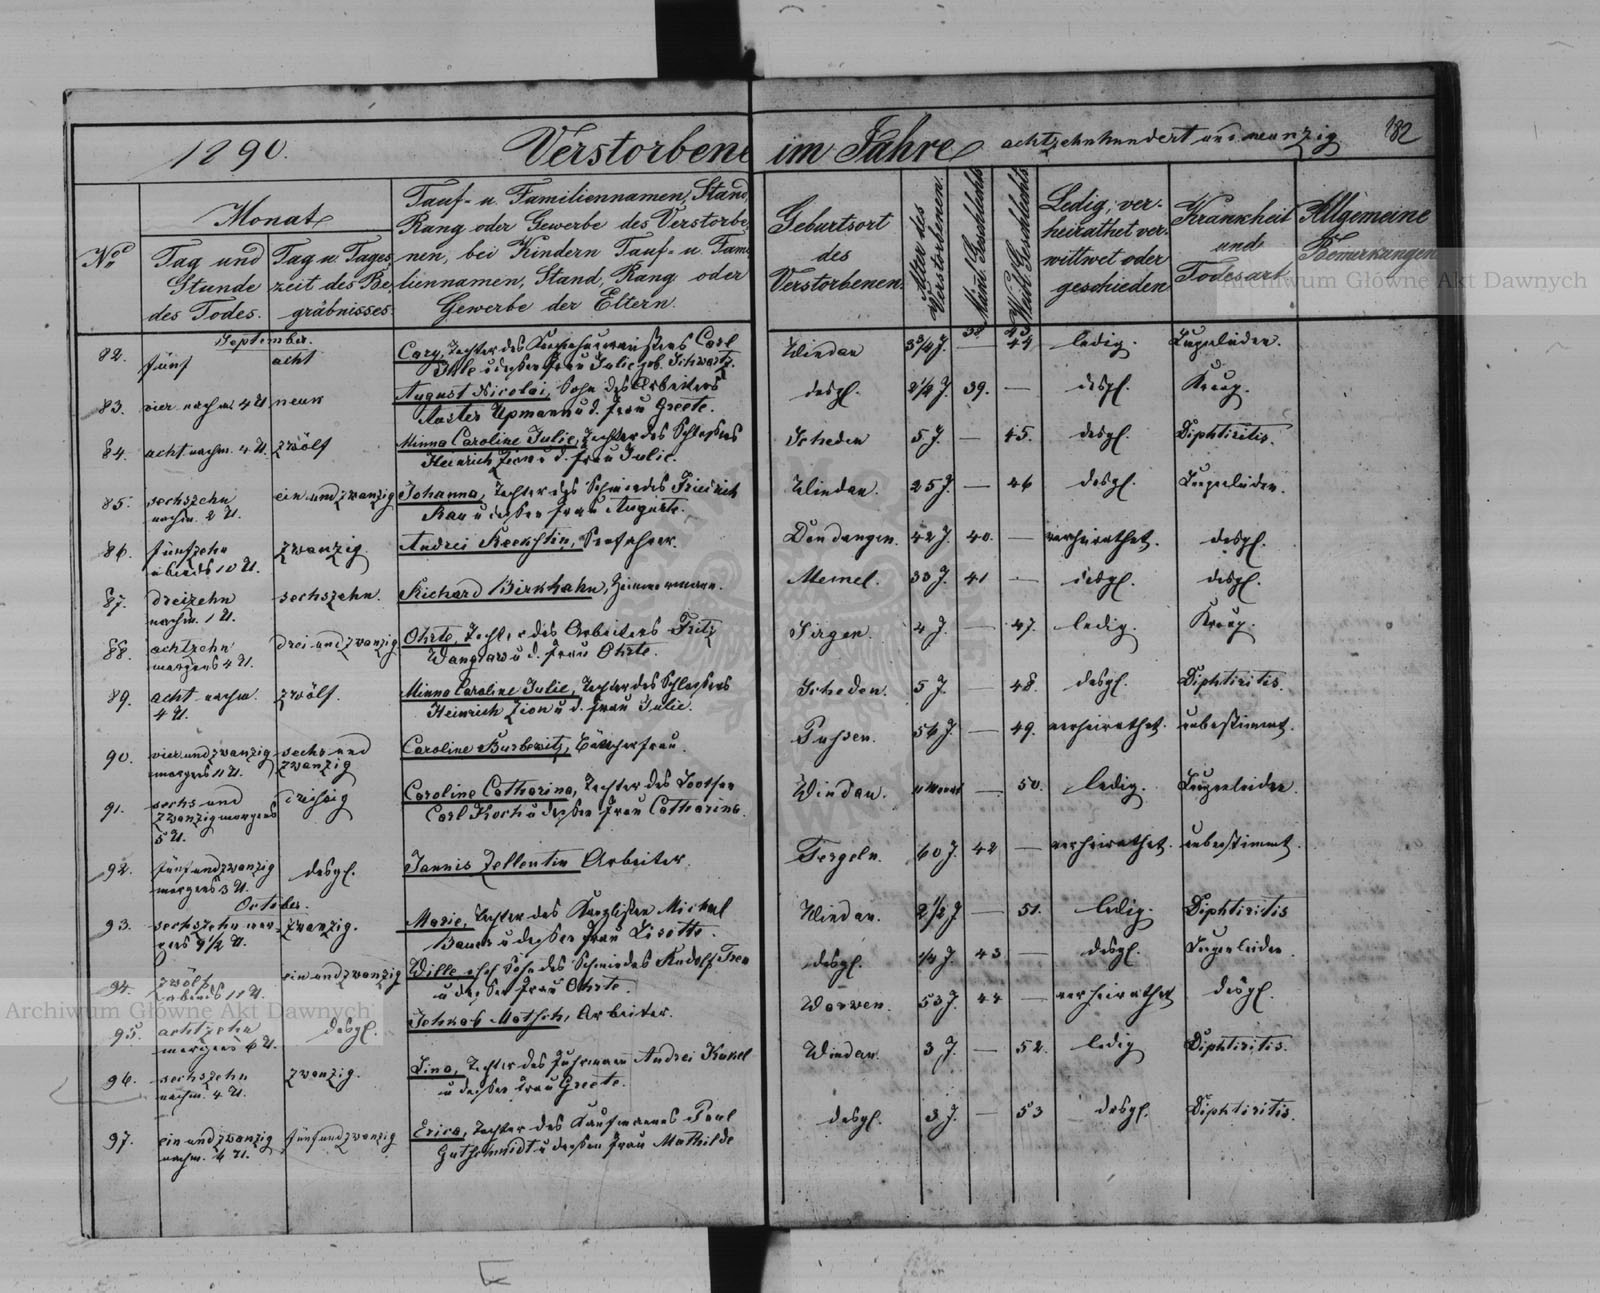 1890.
Verstorbene im Jahre achtzehnhundert und neunzig
182
No
Monat
Tag und
Stunde
des Todes.
Tag u. Tages
zeit des Be
gräbnisses.
Tauf- u. Familiennamen, Stand,
Rang oder Gewerbe des Verstorbe
nen, bei Kindern Tauf- u. Fami
liennamen, Stand, Rang oder
Gewerbe der Eltern.
Geburtsort
des
Verstorbenen.
Alter des
Verstorbenen.
Männl. Geschlechts
Weibl. Geschlechts
Ledig, ver-
heirathet ver-
wittwet oder
geschieden
Krankheit
und
Todesart
Allgemeine
Bemerkungen
September.
82. fünf acht
Tochter des Carl
dessen Frau Julie geb. Schwartz.
Windau 3¾ J. — 44 ledig. Lungenleiden.
83. vier nachm. 4 U. neun
August Nicolai, Sohn des Arbeiters
Upmann u. d. Frau Greete.
desgl. 2½ J. 39. — desgl. Kreup.
84. acht nachm. 4 U. zwölf
Minna Caroline Julie, Tochter des Schlossers
Heinrich Zion u. d. Frau Julie.
Scheden 5 J. — 45. desgl. Diphtiritis.
85. sechszehn
nachm. 2 U.
ein und zwanzig
Johanna, Tochter des Schmiedes Friedrich
Rau u dessen Frau Auguste.
Windau. 25 J. — 46 desgl. Lungenleiden.
86. fünfzehn
abends 10 U.
zwanzig.
Andrei Seefahrer.
Dondangen. 42 J. 40. — verheirathet. desgl.
87. dreizehn
nachm. 1 U.
sechszehn.
Richard Birkhahn, Zimmermann.
Memel. 33 J. 41 — desgl. desgl.
88. achtzehn
morgens 4 U.
drei und zwanzig
Ohrte, Tochter des Arbeiters Fritz
u d. Frau Ohrte.
Sirgen. 4 J. — 47. ledig. Kreup.
89. acht nachm.
4 U.
zwölf.
Minna Caroline Julie, Tochter des Schlossers
Heinrich Zion u d. Frau Julie.
Scheden. 5 J. — 48. desgl. Diphtiritis.
90. vier und zwanzig
morgens 11 U.
sechs und
zwanzig
Caroline Burbewitz, Böttcherfrau.
Pussen. 56 J. — 49. verheirathet. unbestimmt.
91. sechs und
zwanzig morgens
5 U.
dreissig
Caroline Catharina, Tochter des Lootsen
Carl Koch u dessen Frau Catharina.
Windau. 11 Monat — 50. ledig. Lungenleiden
92. fünf und zwanzig
morgens 3 U.
desgl.
Jannis Zellentin Arbeiter.
Tergeln. 60 J. 42 — verheirathet. unbestimmt.
October.
93. sechszehn mor-
gens 9½ U.
zwanzig.
Marie, Tochter des Kanzlisten Michael
Bauer u dessen Frau Lisette.
Windau. 2½ J — 51. ledig. Diphtiritis
94. zwölf
abends 11 U.
ein und zwanzig
Sohn des Schmiedes Rudolf
u dessen Frau Ohrte.
desgl. ¼ J. 43 — desgl. Lungenleiden.
95. achtzehn
morgens 6 U.
desgl.
Jehkab Matsch, Arbeiter.
Warwen. 53 J. 44 — verheirathet desgl.
96. sechszehn
nachm. 4 U.
zwanzig.
Lina, Tochter des Fuhrmann Andrei Kukel
u dessen Frau Greete.
Windau. 3 J. — 52. ledig Diphtiritis.
97. ein und zwanzig
nachm. 4 U.
fünf und zwanzig
Erica, Tochter des Kaufmannes Paul
Gutschmidt u dessen Frau Mathilde
desgl. 3 J. — 53 desgl. Diphtiritis.
Archiwum Główne Akt Dawnych
Archiwum Główne Akt Dawnych